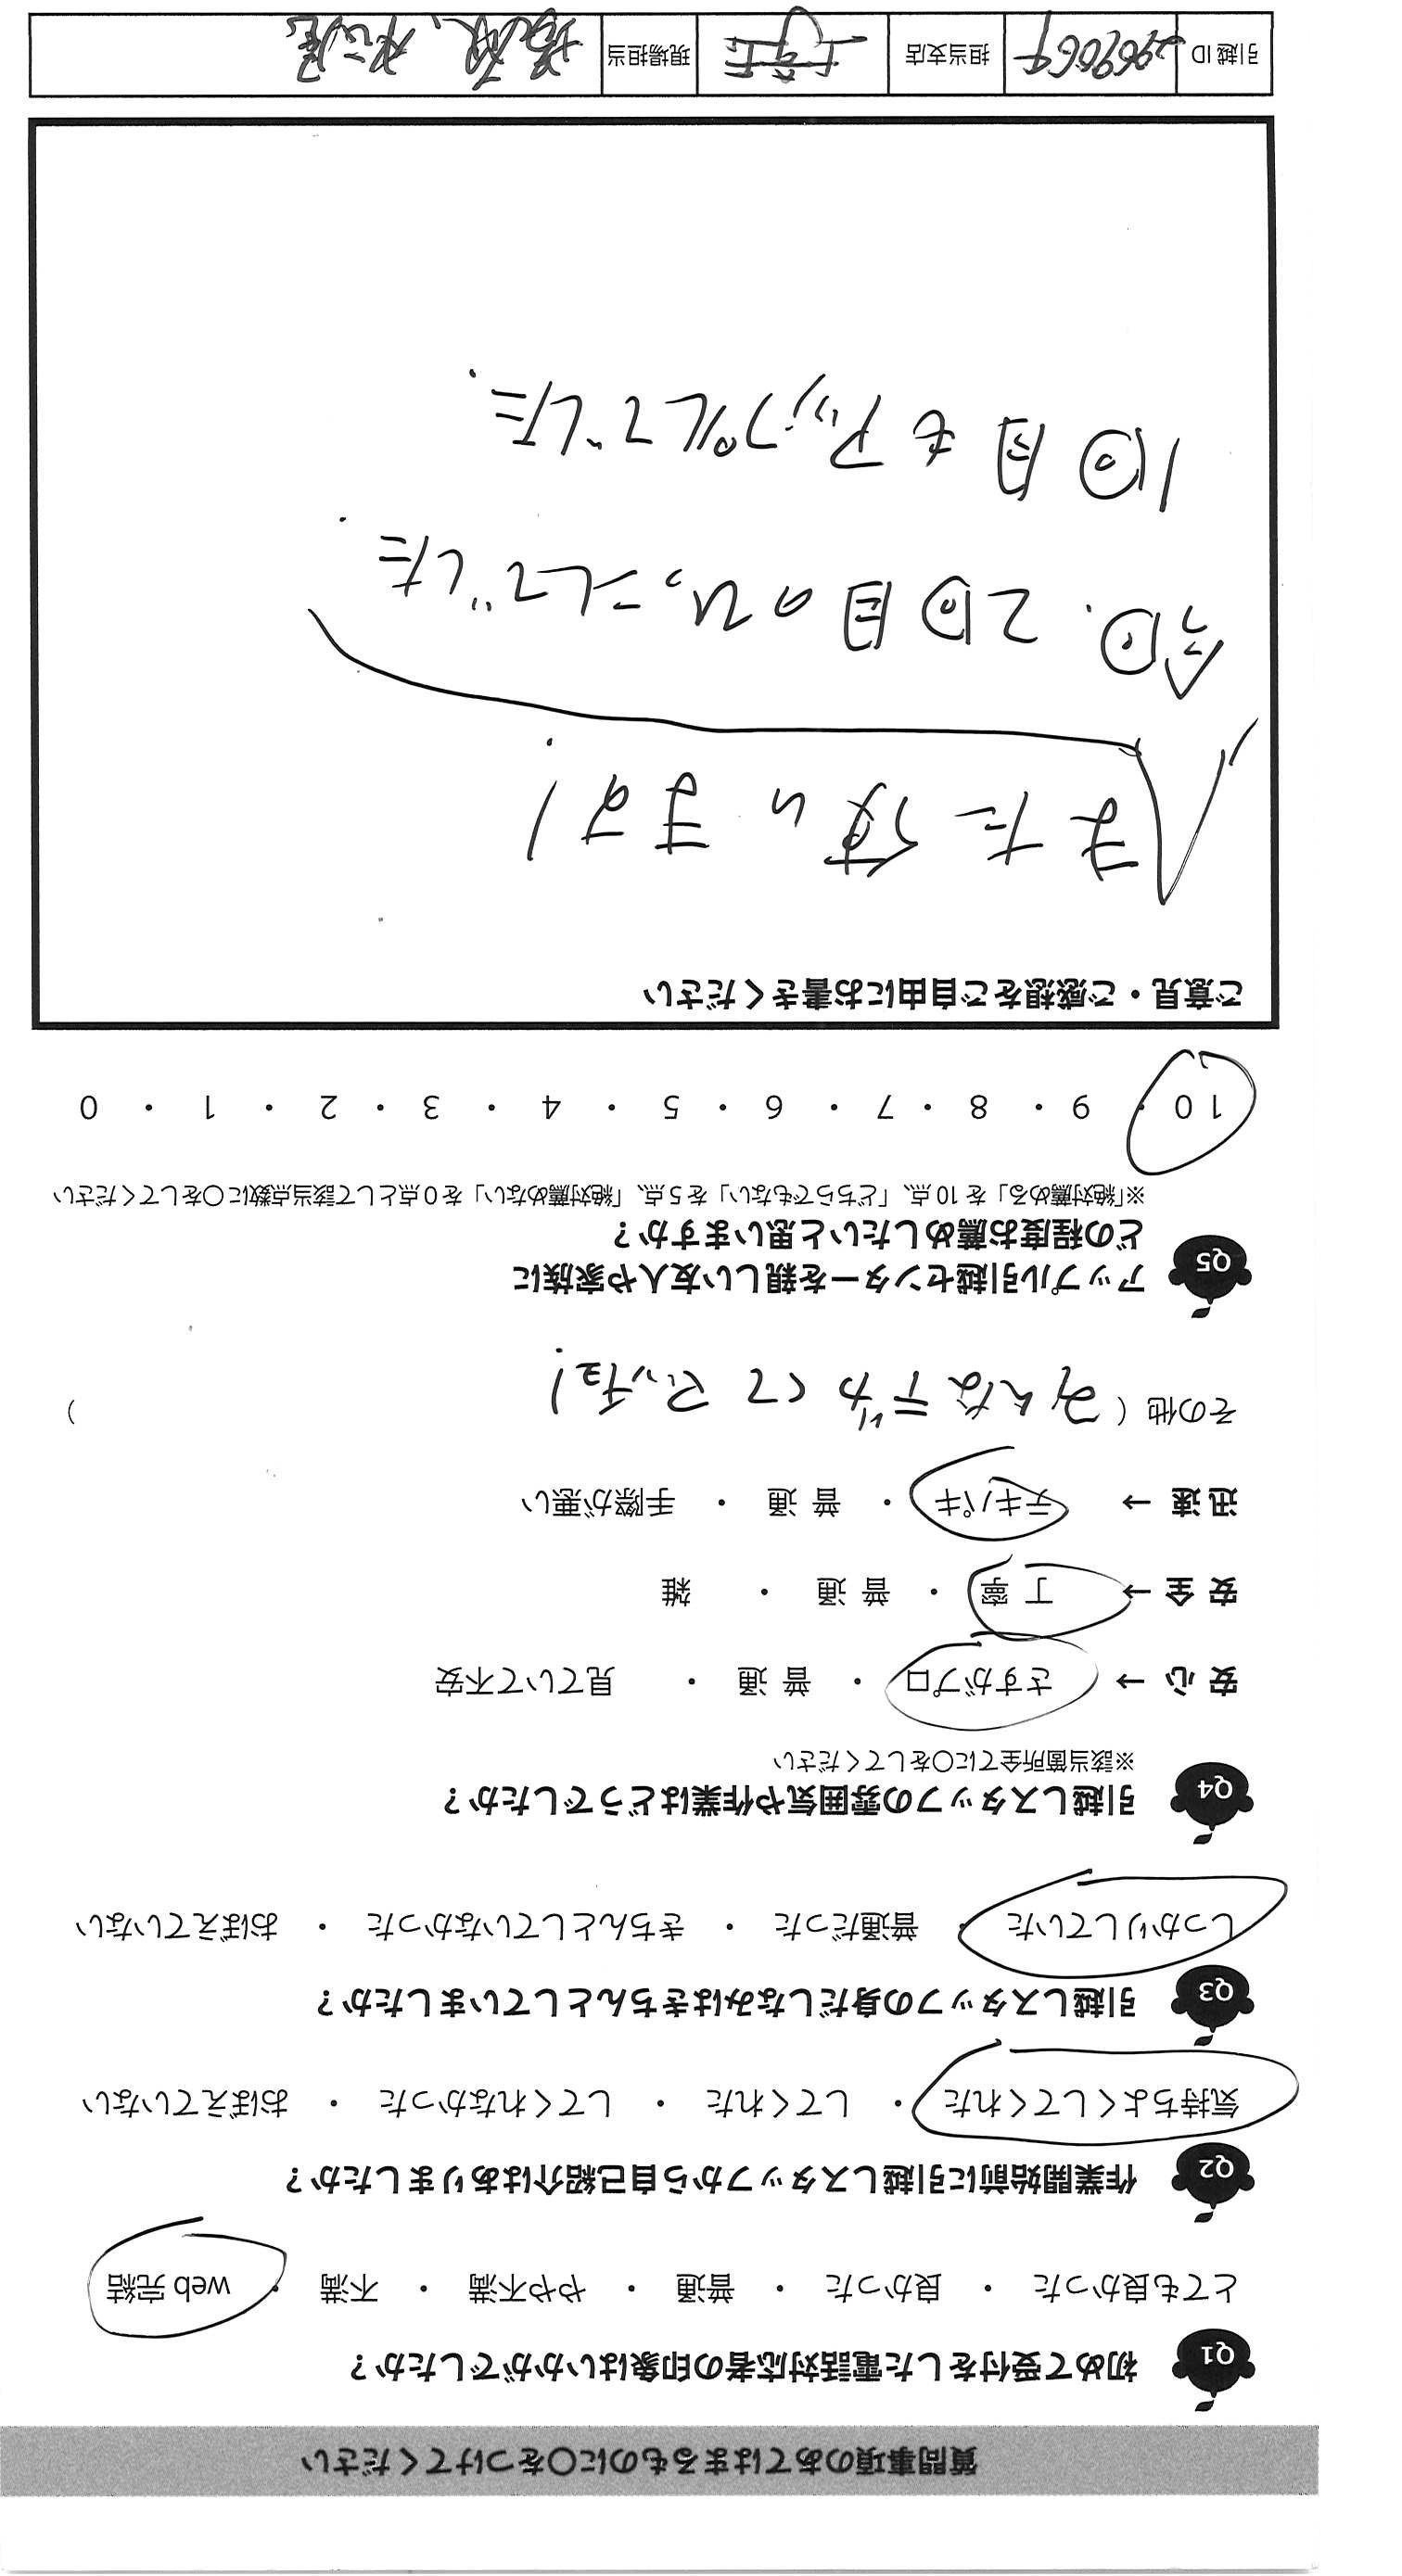 質問事項のあてはまるものに〇をつけてください
Q1 初めて受付をした電話対応者の印象はいかがでしたか?
とても良かった ・ 良かった ・ 普通 ・ やや不満 ・ 不満 ・ web 完結
Q2 作業開始前に引越しスタッフから自己紹介はありましたか?
気持ちよくしてくれた ・ してくれた ・ してくれなかった ・ おぼえていない
Q3 引越しスタッフの身だしなみはきちんとしていましたか?
しっかりしていた ・ 普通だった ・ きちんとしていなかった ・ おぼえていない
Q4 引越しスタッフの雰囲気や作業はどうでしたか?
※該当箇所全てに〇をしてください
安 心 → さすがプロ ・ 普 通 ・ 見ていて不安
安 全 → 丁 寧 ・ 普 通 ・ 雑
迅 速 → テキパキ ・ 普 通 ・ 手際が悪い
その他 ( みんなデカくてマッチョ! )
Q5 アップル引越センターを親しい友人や家族に
どの程度お薦めしたいと思いますか?
※「絶対薦める」を 10 点、「どちらでもない」を 5 点、「絶対薦めない」を 0 点として該当点数に〇をしてください
10 ・ 9 ・ 8 ・ 7 ・ 6 ・ 5 ・ 4 ・ 3 ・ 2 ・ 1 ・ 0
ご意見・ご感想をご自由にお書きください
また使います!
今回、2回目のひっこしでした.
1回目もアップルでした.
引越 ID 2969069 担当支店 現場担当